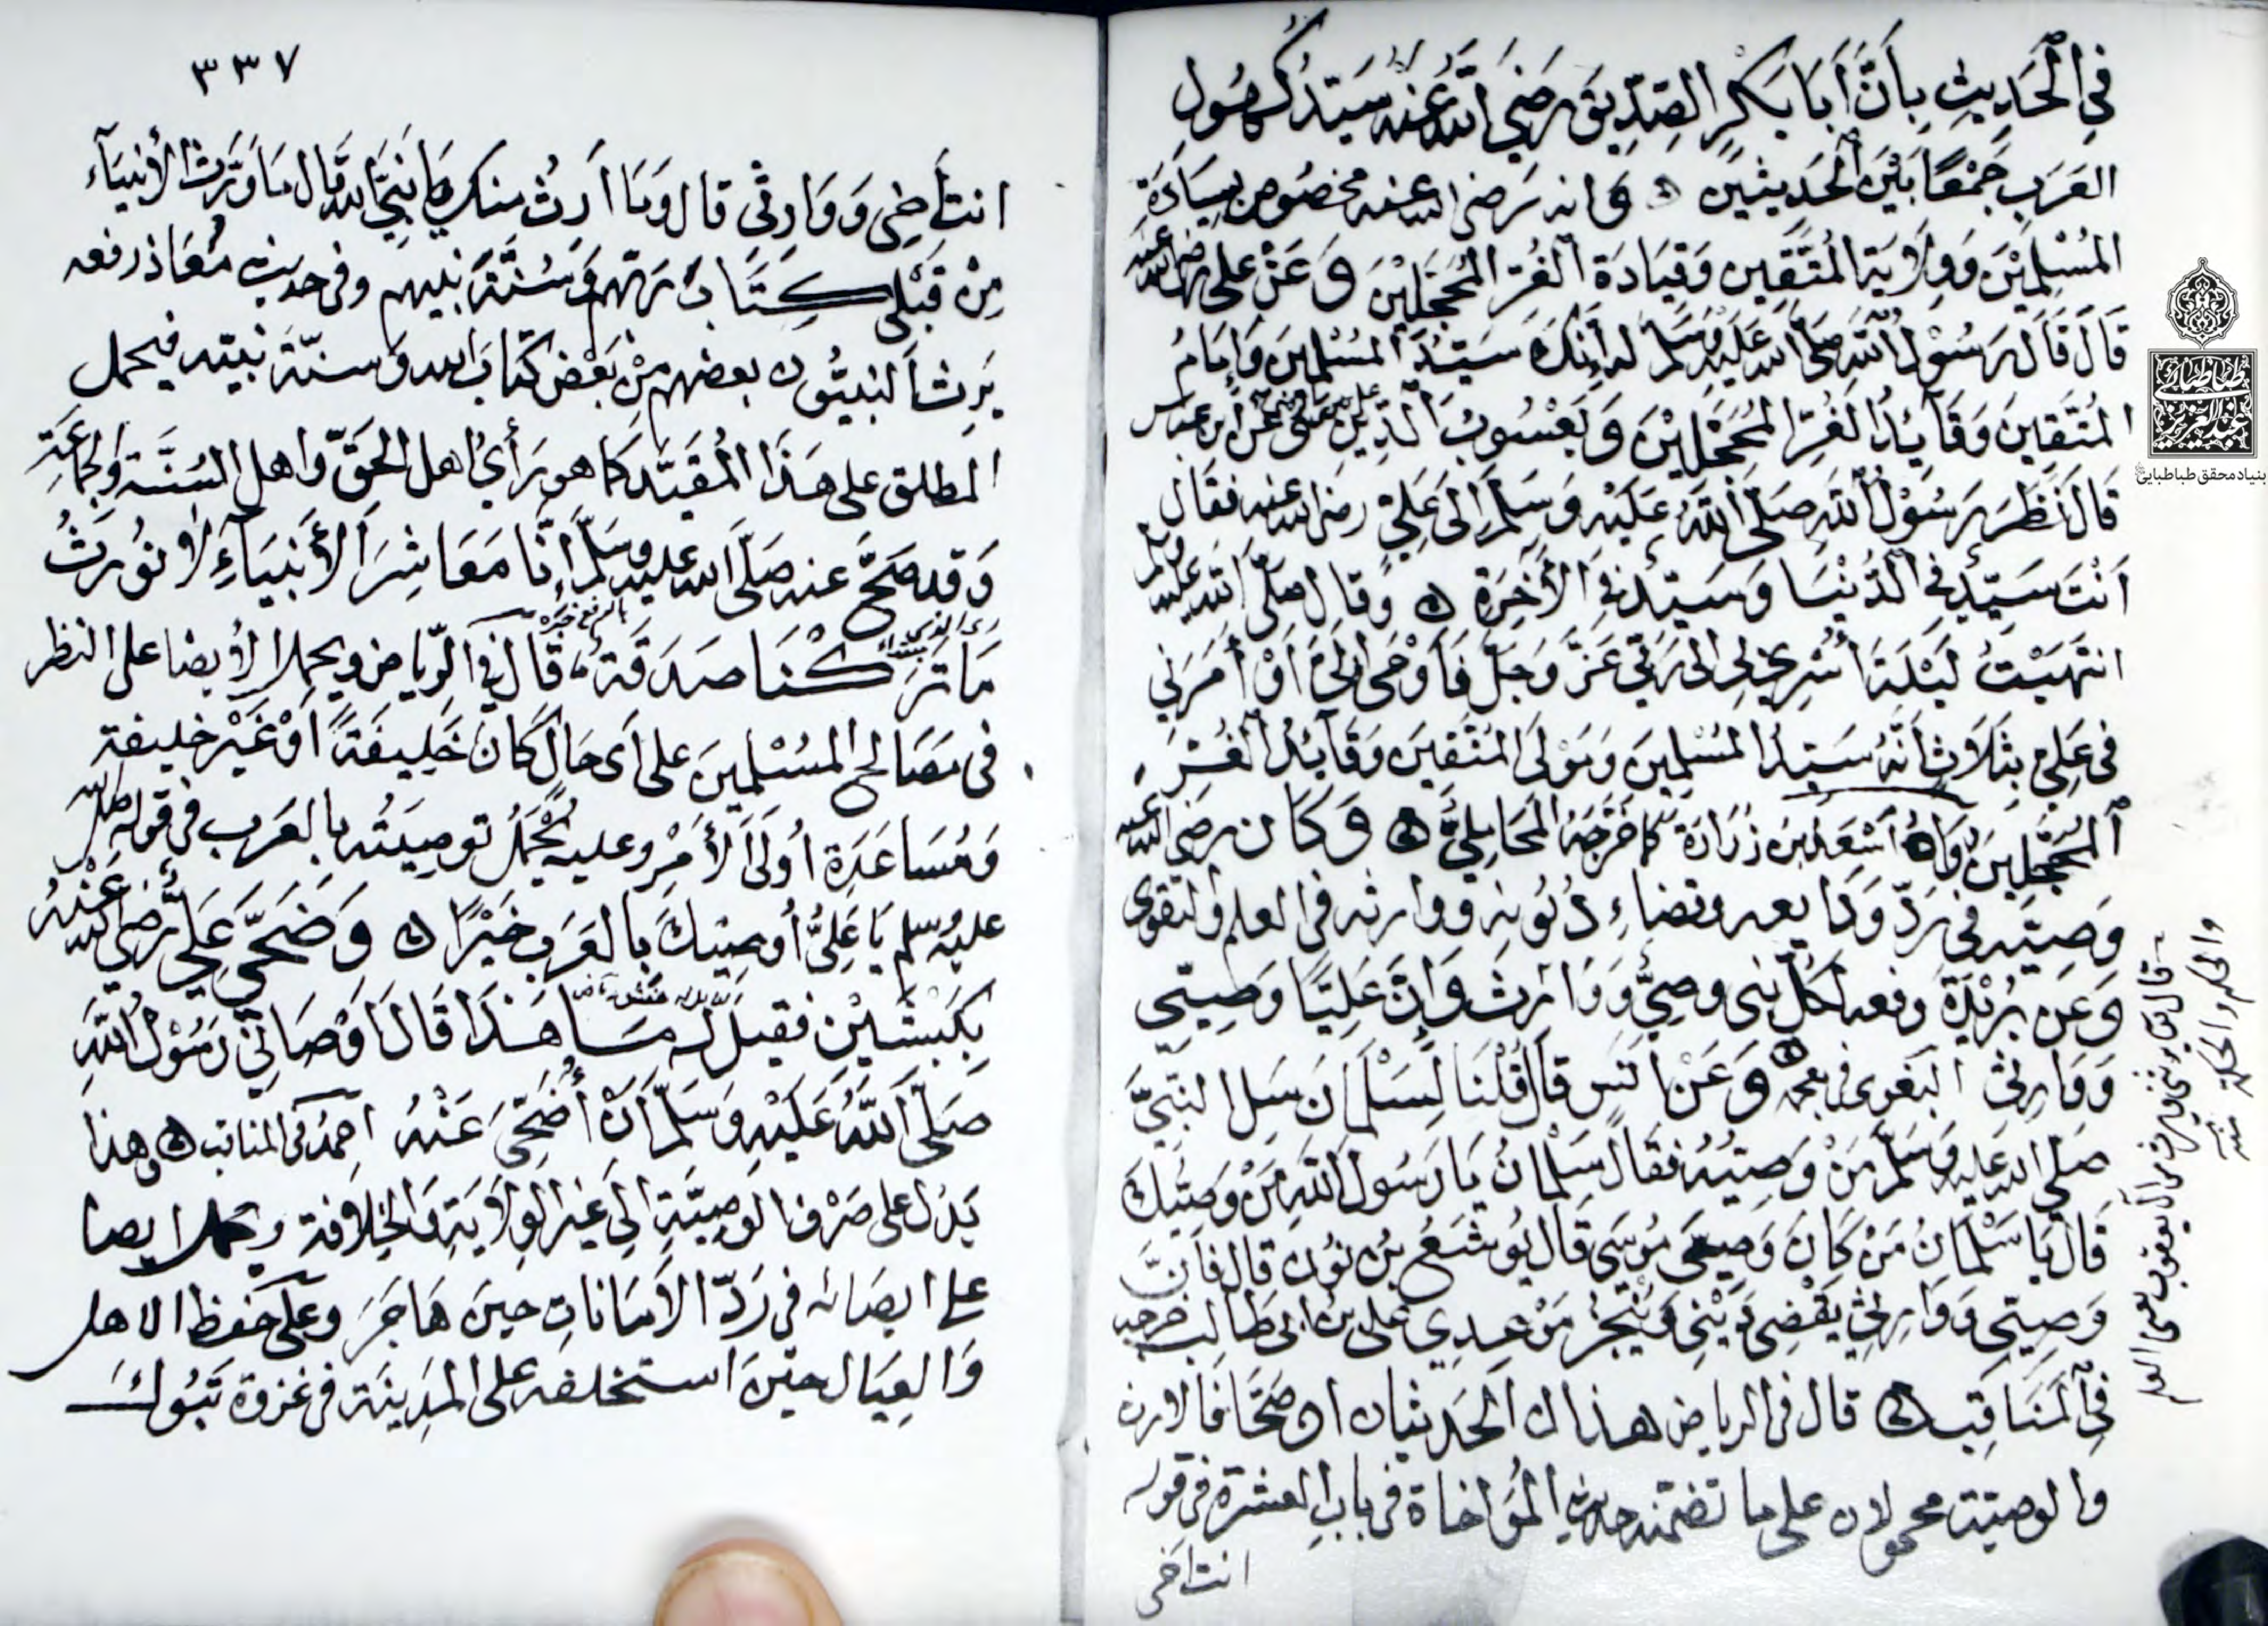 في الْحَدِيثِ بِأَنَّ أَبَا بَكْرٍ الصِّدِّيقَ رَضِيَ اللهُ عَنْهُ سَيِّدُ كُهُولِ
العَرَبِ جَمْعًا بَيْنَ الْحَدِيثَيْنِ وانه رضى الله عنه مخصوص بسِيَادَةِ
المُسْلِمِيْنَ وَوِلَايَةِ المُتَّقِينَ وَقِيَادَةِ الْغُرِّ المُحَجَّلِيْنَ وَعَنْ على رضى الله عنه
قَالَ قَالَ رَسُوْلُ اللهِ صَلَّى الله عَلَيْهِ وَسَلَّمَ إنك سَيِّدُ المُسْلِمِينَ وَإِمَامُ
المُتَّقِينَ وَقَائِدُ الغُرِّ المُحَجَّلِيْنَ وَيَعْسُوبُ الدِّينِ عن ابن عباس
قَالَ نَظَرَ رَسُوْلُ اللهِ صَلَّى اللهُ عَلَيْهِ وَسَلَّمَ إِلَى عَلِيٍّ رضى الله عنه فقال
اَنْتَ سَيِّدٌ فى الدُّنْيَا وَسَيِّدٌ فى الْآخِرَةِ وقال صلى الله عليه وسلم
انتَهَيْتُ لَيْلَةَ أُسْرِيَ بى إلى رَبِّى عَزَّ وَجَلَّ فَأَوْحَى إِلَيَّ أَوْ أَمَرَنِي
فى عَلِيٍّ بِثَلَاثٍ أَنَّهُ سَيِّدُ المُسْلِمِينَ وَمَوْلَى المُتَّقِينَ وَقَائِدُ الغُرِّ
المُحَجَّلِينَ رَوَاهُ أَسْعَدُ بن زُرَارَةَ كما خَرَّجَهُ المَحَامِلِيُّ وَكَانَ رضى الله عنه
وَصِيّه فى رَدِّ وَدَايعه وقضاءِ دُيُونِه ووارثه فى العلم والتقوى
وَعَن بُرَيْدَةَ رفعه لكلِّ نبى وصِيٌّ وَوَارِثٌ وَإِنَّ عَلِيًّا وَصِيّى
وَوَارِثى البغوى فى معجمه وَعَنْ انَسٍ قالَ قُلْنَا لِسَلْمَانَ سَلِ النَّبِيَّ
صلى الله عليه وَسَلَّمَ مَنْ وَصِيُّهُ فقالَ سَلْمَانُ يَا رَسُولَ اللهِ مَنْ وَصِيُّكَ
قَالَ يَا سَلْمَانُ مَنْ كَانَ وَصِيَّ مُوسَى قَالَ يُوشَعُ بنُ نُون قال فَإِنَّ
وَصِيِّى وَوَارِثى يَقْضِى دَيْنِى وَيُنْجِزُ مَوْعِدِي على بن ابى طالب خرجه
فى الْمَنَاقِبِ قال فى الرياض هذان الحَدِيثان ان صَحَّا فالارث
والوصيّة محمولان على ما تضمّنه حديث المُؤَاخاة فى باب العشرة فى قوله
انت اخى
٣٣٧
انت أخِى وَوَارِثى قال وَمَا ارِثُ منك يا نَبِيَّ الله قال مَا وَرَّثَ الأنبيَآء
مِنْ قَبْلى كِتَابَ رَبِّهِم وَسُنَّةَ نبيهم وفى حديث مُعَاذ رفعه
يَرِثُ النبيُّون بعضهم مِنْ بَعْض كتابَ الله وسنّةَ نبيّه فيحمل
المطلق على هَذَا المُقَيَّد كما هو رَأْيُ اهل الحَقّ واهل السُّنَّة والجماعَةِ
وَقد صَحَّ عنه صَلَّى الله عليه وسَلَّمَ إنَّا مَعَاشِرَ الأَنْبِيَآءِ لا نُورَثُ
مَا تَرَكْنَا صَدَقَةٌ قال فى الرِّياض ويحمل الأيصا على النظر
فى مَصَالِح المُسْلِمِينَ على أىّ حَالٍ كَانَ خَلِيفَةً أوْ غَيْرَ خليفة
وَمُسَاعَدَةِ أُولَى الأَمْرِ وعليه يُحْمَلُ توصِيَتُه بالعَرَب فى قوله صلى الله
عليه وسلم يَا عَلِيُّ أُوصِيكَ بالعَرَبِ خَيْرًا وَضَحَّى عَلِيٌّ رضى الله عَنْهُ
بِكَبْشَيْنِ فقيل له مَا هَذَا قَالَ أَوْصَانِى رَسُوْلُ اللهِ
صَلَّى اللهُ عَلَيْهِ وَسَلَّمَ أَنْ أُضَحِّىَ عَنْهُ احمدُ فى المناقب وهذا
يَدُلّ على صَرْفِ الوَصِيَّةِ إلى غَيْرِ الوِلَايَةِ وَالخِلَافة ويحمل ايصا
على ايصَائه فى رَدِّ الأمَانَاتِ حينَ هَاجَرَ وعلى حفظ الاهل
وَالعِيَال حيْنَ استخلفه على المَدِينَة فى غزوة تَبُوك
طباطبائى
عبد العزيز
بنیاد محقق طباطبایی